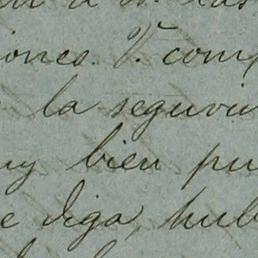 iones. V. com
la seguri
uy bien pu
e diga, hub